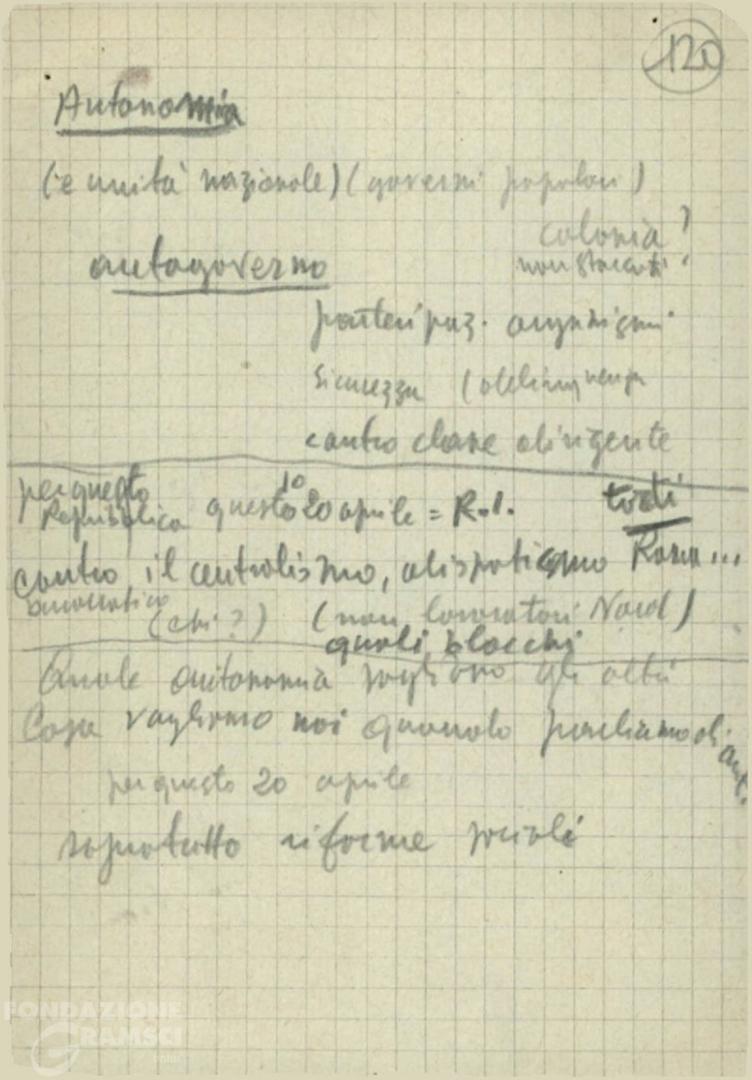 120
Autonomia
(e unità nazionale) (governi popolari)
colonia?
autogoverno
non staccati?
organismi
sicurezza (delinquenza
contro classe dirigente
per questo
10
Repubblica questo 20 aprile = R.I. tutti
contro il centralismo, dispotismo Roma...
burocratico (chi?) (non lavoratori Nord)
quali blocchi
Quale autonomia vogliono gli altri
Cosa vogliamo noi quando parliamo di aut.
per questo 20 aprile
sopratutto riforme sociali
FONDAZIONE
GRAMSCI